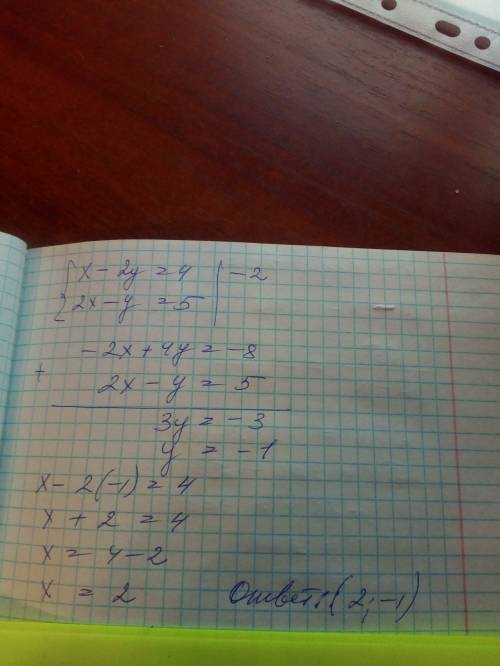 { x - 2y = 4 | -2
2x - y = 5
-2x + 4y = -8
+
2x - y = 5
3y = -3
y = -1
x - 2(-1) = 4
x + 2 = 4
x = 4 - 2
x = 2 Ответ: (2; -1)